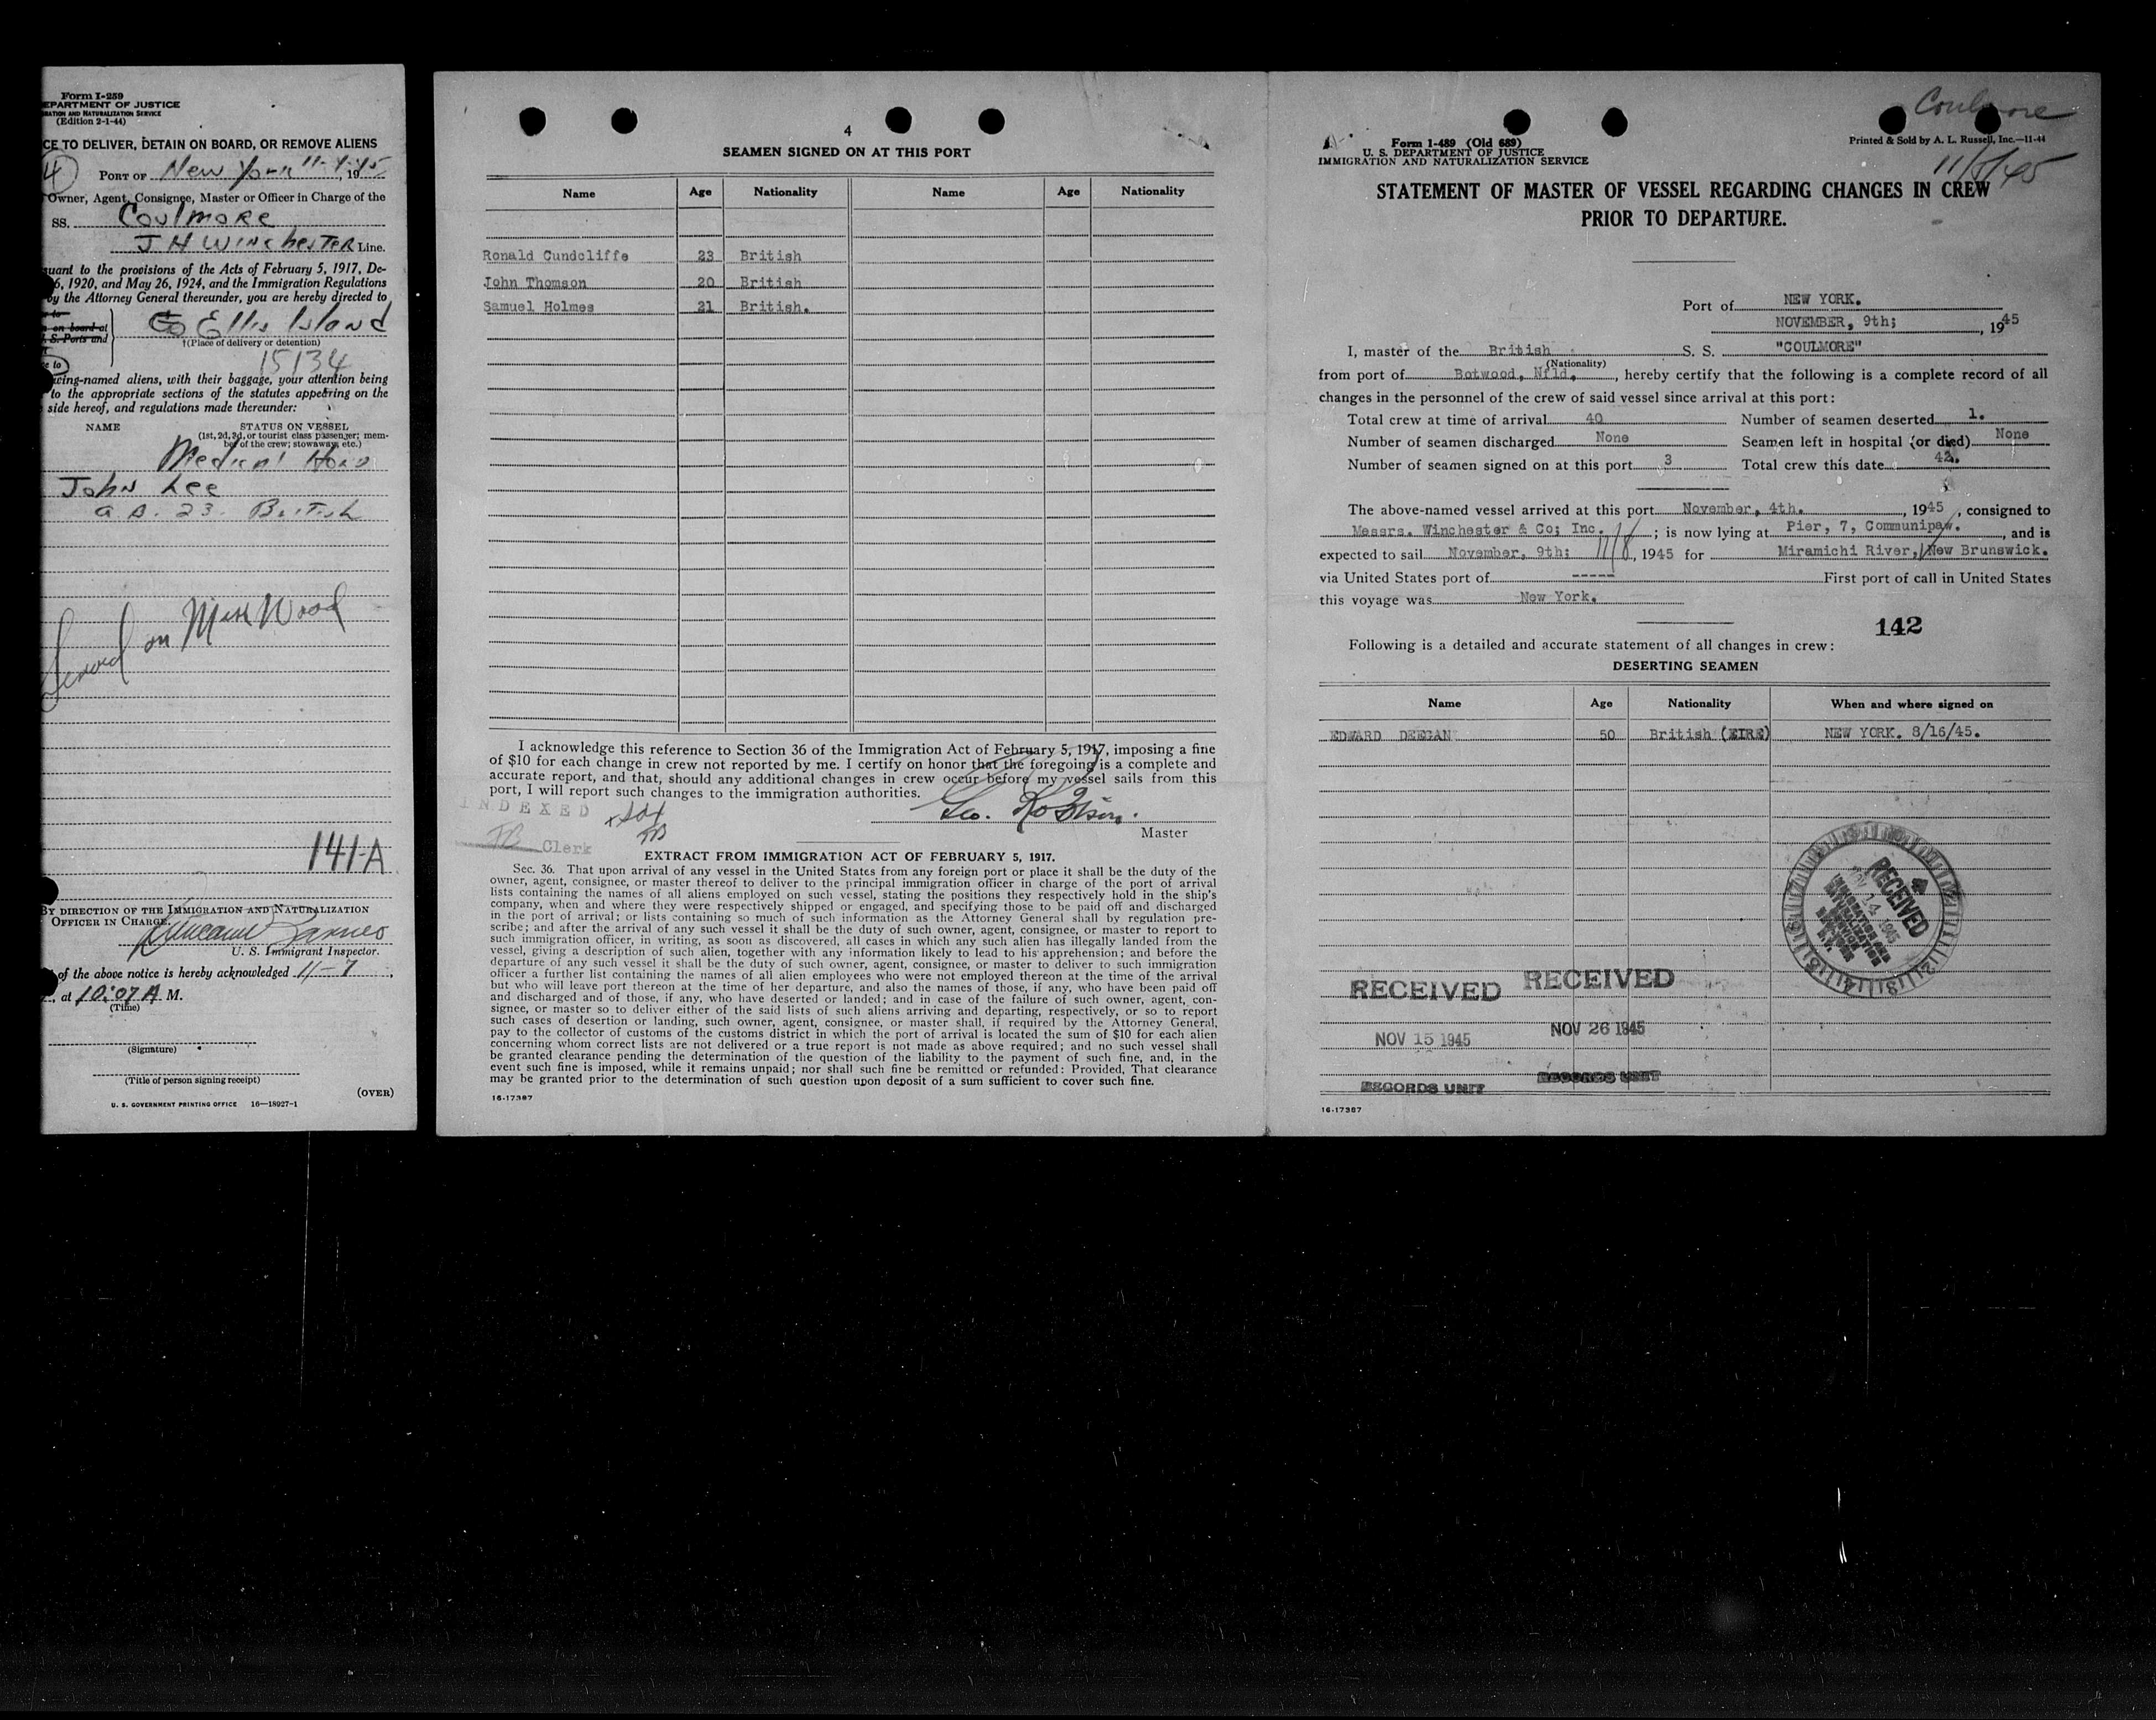 Form I-259
EPARTMENT OF JUSTICE
RATION AND NATURALIZATION SERVICE
(Edition 2-1-44)
CE TO DELIVER, DETAIN ON BOARD, OR REMOVE ALIENS
4 PORT OF New York 11- 1945
Owner, Agent, Consignee, Master or Officer in Charge of the
SS. Coulmore
J H Winchester Line.
suant to the provisions of the Acts of February 5, 1917, De-
6, 1920, and May 26, 1924, and the Immigration Regulations
by the Attorney General thereunder, you are hereby directed to
r to
n on board at
. S. Ports and
e to
to Ellis Island
†(Place of delivery or detention)
15134
wing-named aliens, with their baggage, your attention being
to the appropriate sections of the statutes appearing on the
side hereof, and regulations made thereunder:
NAME STATUS ON VESSEL
(1st, 2d, 3d, or tourist class passenger; mem-
ber of the crew; stowaway, etc.)
Medical Hold
John Lee
a.B. 23. British
Served on Miss Wood
141-A
BY DIRECTION OF THE IMMIGRATION AND NATURALIZATION
OFFICER IN CHARGE.
U. S. Immigrant Inspector.
of the above notice is hereby acknowledged 11-7,
, at 10:07 A M.
(Time)
(Signature)
(Title of person signing receipt)
(OVER)
U. S. GOVERNMENT PRINTING OFFICE 16—18927-1
4
SEAMEN SIGNED ON AT THIS PORT
Name Age Nationality Name Age Nationality
Ronald Cundcliffe 23 British
John Thomson 20 British
Samuel Holmes 21 British.
I acknowledge this reference to Section 36 of the Immigration Act of February 5, 1917, imposing a fine
of $10 for each change in crew not reported by me. I certify on honor that the foregoing is a complete and
accurate report, and that, should any additional changes in crew occur before my vessel sails from this
port, I will report such changes to the immigration authorities.
INDEXED
Geo. Robson.
Master
JB Clerk JB
EXTRACT FROM IMMIGRATION ACT OF FEBRUARY 5, 1917.
Sec. 36. That upon arrival of any vessel in the United States from any foreign port or place it shall be the duty of the
owner, agent, consignee, or master thereof to deliver to the principal immigration officer in charge of the port of arrival
lists containing the names of all aliens employed on such vessel, stating the positions they respectively hold in the ship's
company, when and where they were respectively shipped or engaged, and specifying those to be paid off and discharged
in the port of arrival; or lists containing so much of such information as the Attorney General shall by regulation pre-
scribe; and after the arrival of any such vessel it shall be the duty of such owner, agent, consignee, or master to report to
such immigration officer, in writing, as soon as discovered, all cases in which any such alien has illegally landed from the
vessel, giving a description of such alien, together with any information likely to lead to his apprehension; and before the
departure of any such vessel it shall be the duty of such owner, agent, consignee, or master to deliver to such immigration
officer a further list containing the names of all alien employees who were not employed thereon at the time of the arrival
but who will leave port thereon at the time of her departure, and also the names of those, if any, who have been paid off
and discharged and of those, if any, who have deserted or landed; and in case of the failure of such owner, agent, con-
signee, or master so to deliver either of the said lists of such aliens arriving and departing, respectively, or so to report
such cases of desertion or landing, such owner, agent, consignee, or master shall, if required by the Attorney General,
pay to the collector of customs of the customs district in which the port of arrival is located the sum of $10 for each alien
concerning whom correct lists are not delivered or a true report is not made as above required; and no such vessel shall
be granted clearance pending the determination of the question of the liability to the payment of such fine, and, in the
event such fine is imposed, while it remains unpaid; nor shall such fine be remitted or refunded: Provided, That clearance
may be granted prior to the determination of such question upon deposit of a sum sufficient to cover such fine.
16-17387
Coulmore
Form I-489 (Old 689)
U. S. DEPARTMENT OF JUSTICE
IMMIGRATION AND NATURALIZATION SERVICE
Printed & Sold by A. L. Russell, Inc.—11-44
11/8/45
STATEMENT OF MASTER OF VESSEL REGARDING CHANGES IN CREW
PRIOR TO DEPARTURE.
Port of NEW YORK.
NOVEMBER, 9th; , 1945
I, master of the British S. S. "COULMORE"
(Nationality)
from port of Botwood, Nfld, , hereby certify that the following is a complete record of all
changes in the personnel of the crew of said vessel since arrival at this port:
Total crew at time of arrival 40 Number of seamen deserted 1.
Number of seamen discharged None Seamen left in hospital (or died) None
Number of seamen signed on at this port 3 Total crew this date 42.
The above-named vessel arrived at this port November, 4th. , 1945 , consigned to
Messrs. Winchester & Co; Inc. ; is now lying at Pier, 7, Communipaw. , and is
expected to sail November, 9th: 11/8, 1945 for Miramichi River, New Brunswick.
via United States port of ----- First port of call in United States
this voyage was New York.
142
Following is a detailed and accurate statement of all changes in crew:
DESERTING SEAMEN
Name Age Nationality When and where signed on
EDWARD DEEGAN 50 British (EIRE) NEW YORK. 8/16/45.
RECEIVED
NOV 14 1945
IMMIGRATION AND
NATURALIZATION
SERVICE
RECEIVED RECEIVED
NOV 15 1945 NOV 26 1945
RECORDS UNIT RECORDS UNIT
16-17387